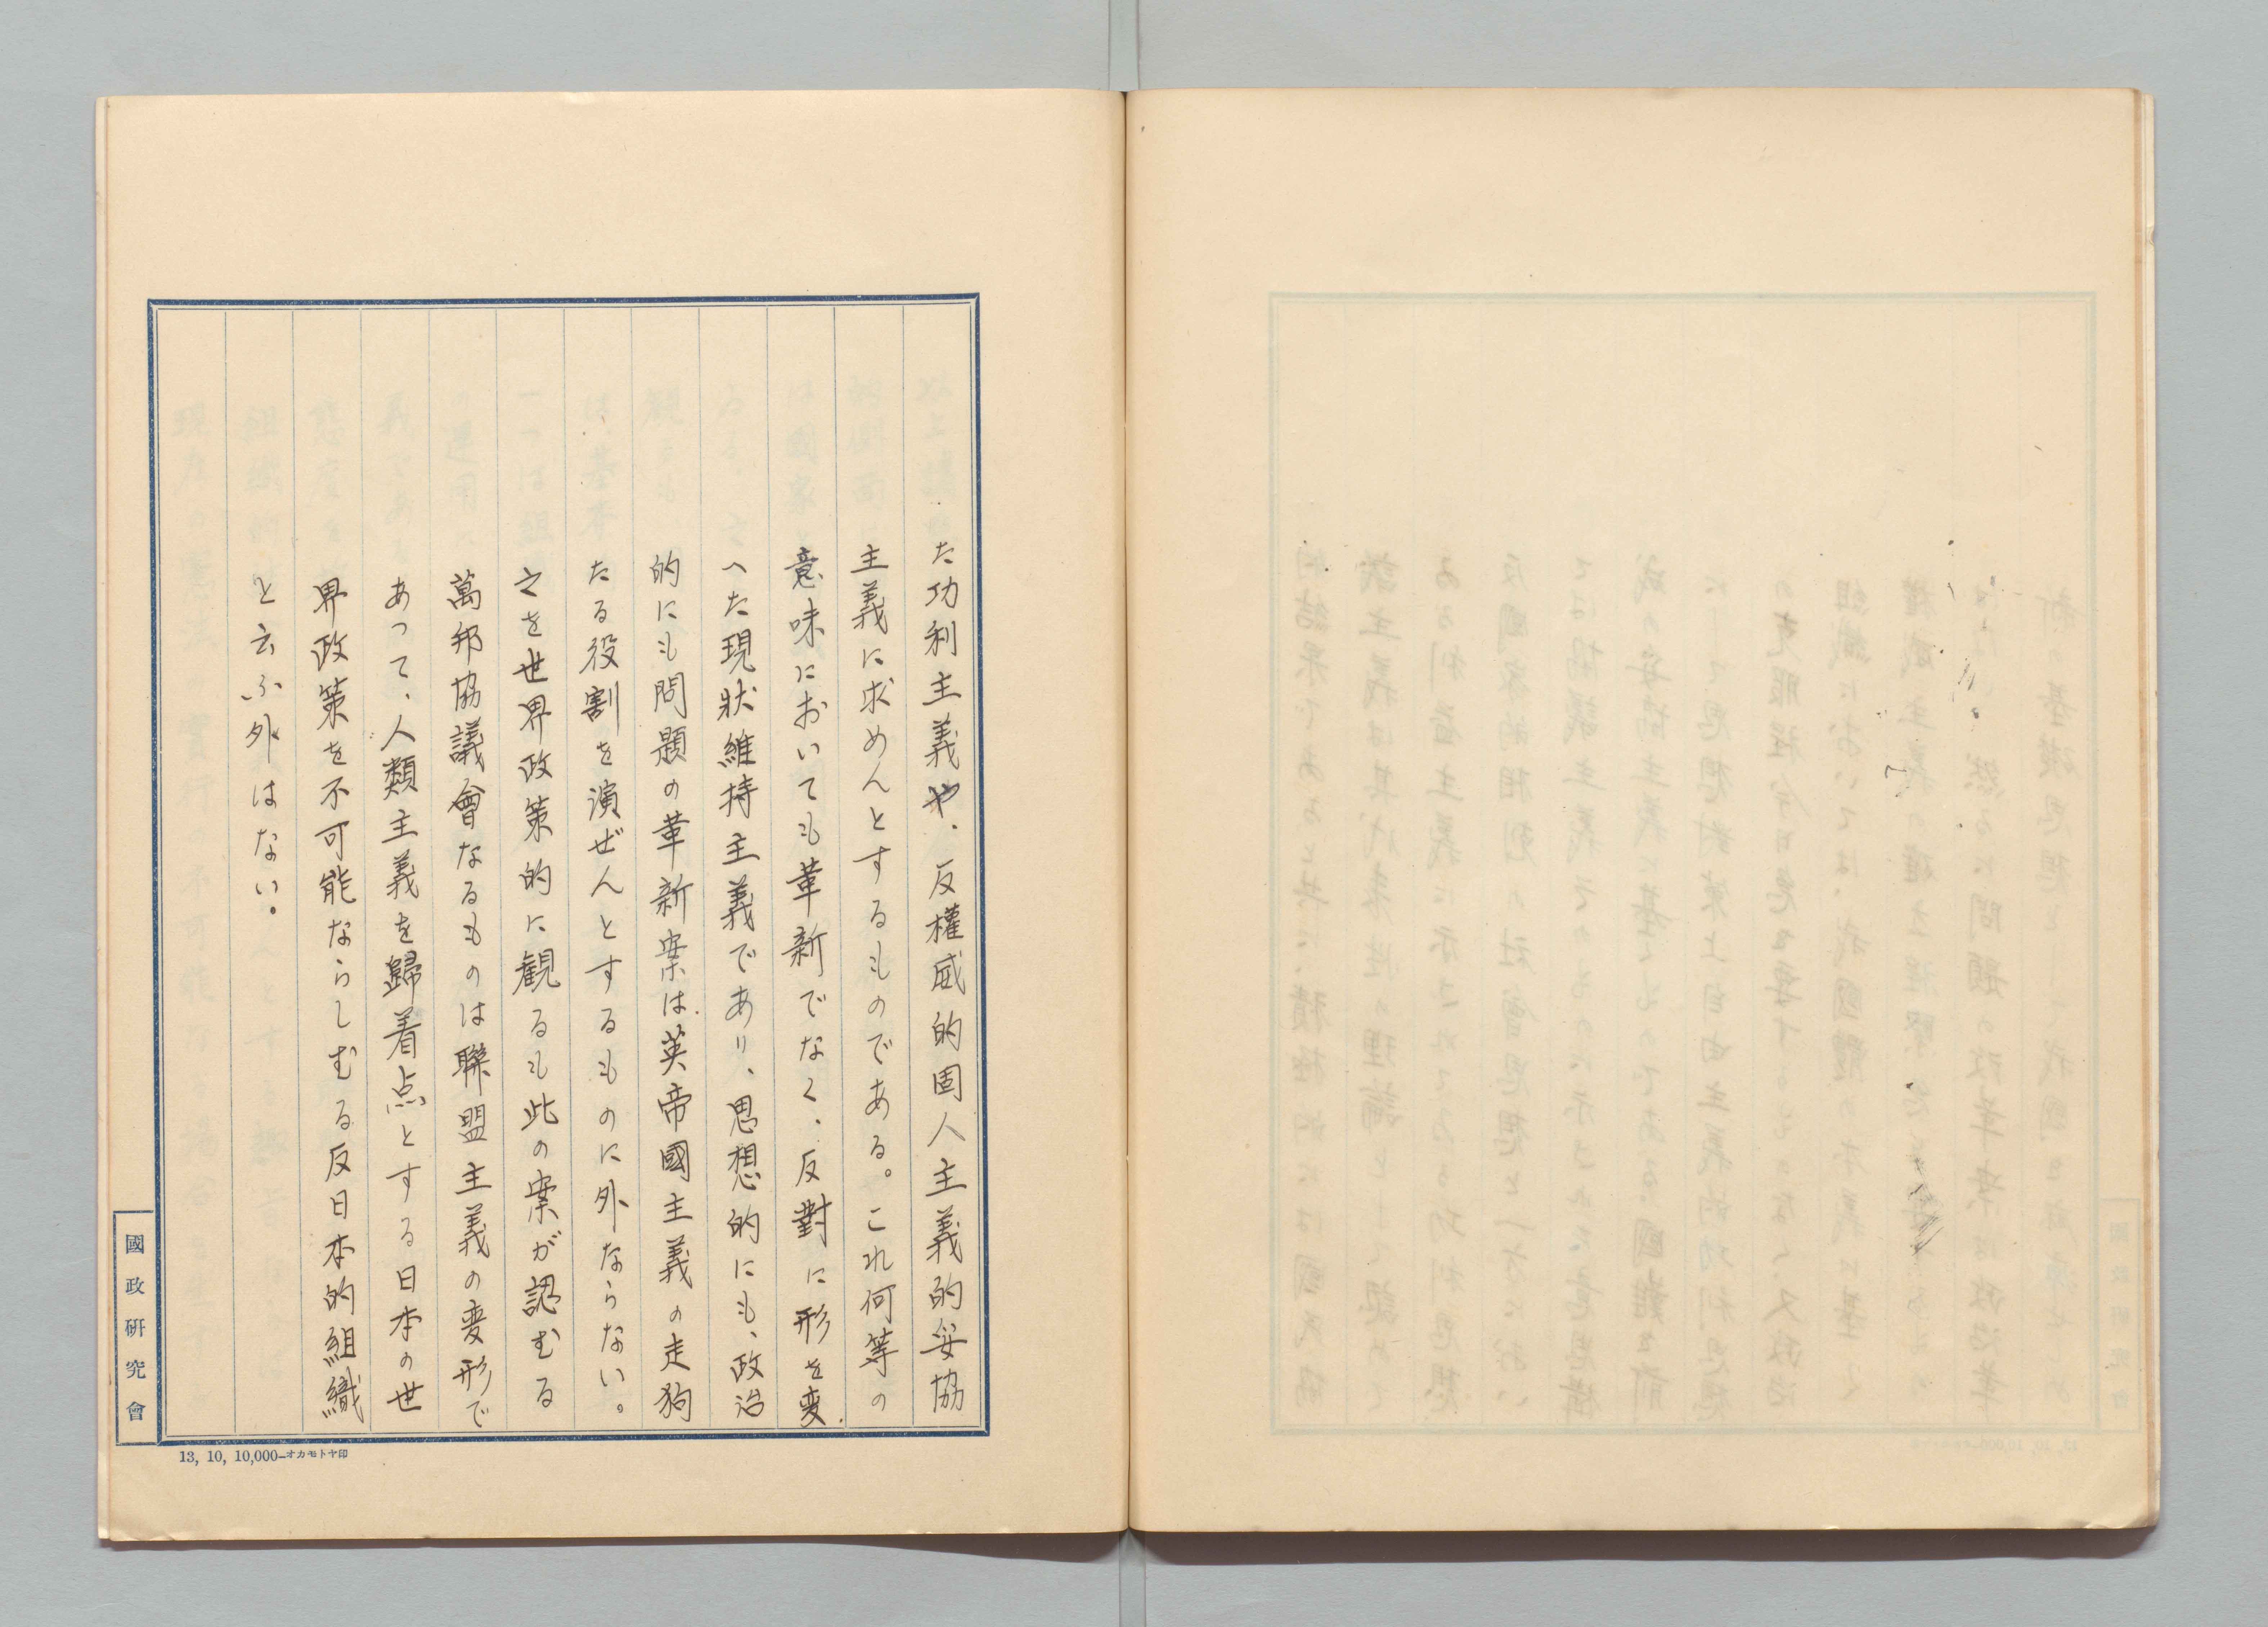 た功利主義や、反權威的固人主義的妥協
主義に求めんとするものである。これ何等の
意味においても革新でなく、反對に形を変
へた現狀維持主義であり、思想的にも、政治
的にも問題の革新案は英帝國主義の走狗
たる役割を演ぜんとするものに外ならない。
之を世界政策的に観るも此の案が認むる
萬邦協議會なるものは聯盟主義の変形で
あつて、人類主義を歸着点とする日本の世
界政策を不可能ならしむる反日本的組織
と云ふ外はない。
國政研究會
13, 10, 10,000—オカモトヤ印